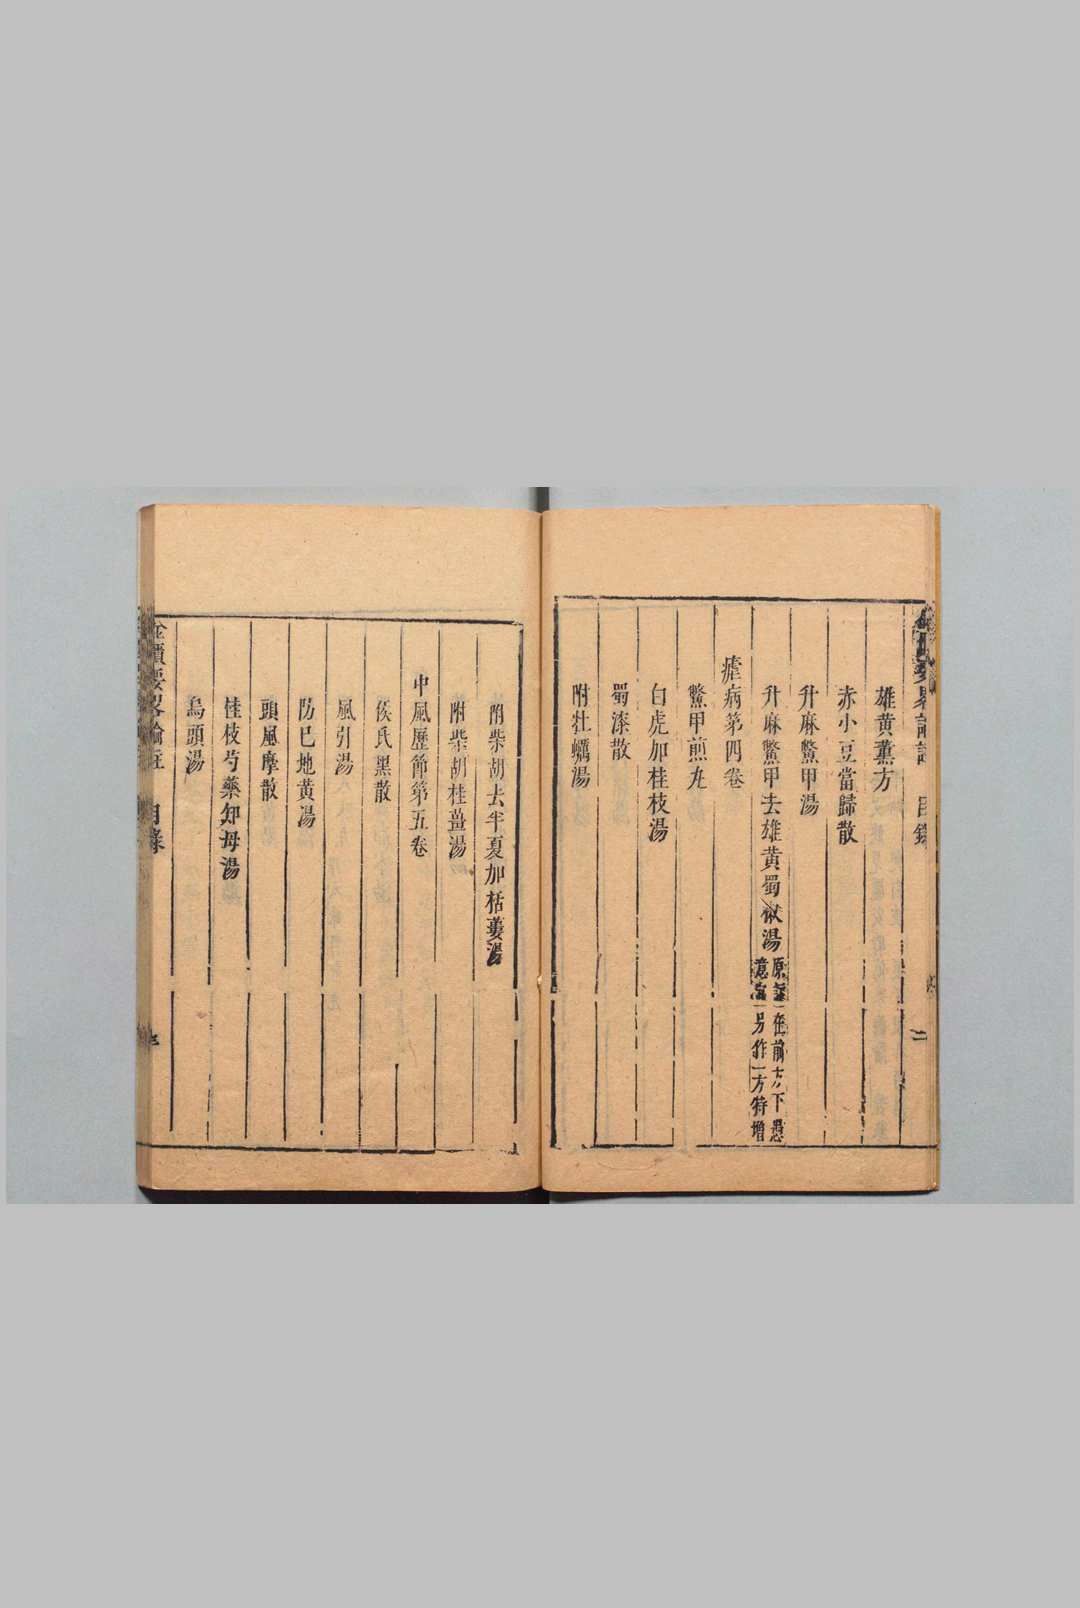 雄黃薰方
赤小豆當歸散
升麻鱉甲湯
升麻鱉甲去雄黃蜀椒湯 原在前方下愚
意另作一方特增
瘧病第四卷
鱉甲煎丸
白虎加桂枝湯
蜀漆散
附牡蠣湯
附柴胡去半夏加栝蔞湯
附柴胡桂薑湯
中風歷節第五卷
侯氏黑散
風引湯
防巳地黃湯
頭風摩散
桂枝芍藥知母湯
烏頭湯
金匱要略論註 目錄